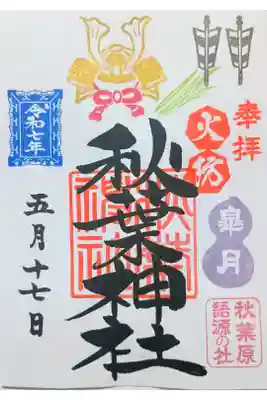 奉拝
火防
皐月
秋葉原
語源の社
秋葉神社
令和七年
五月十七日